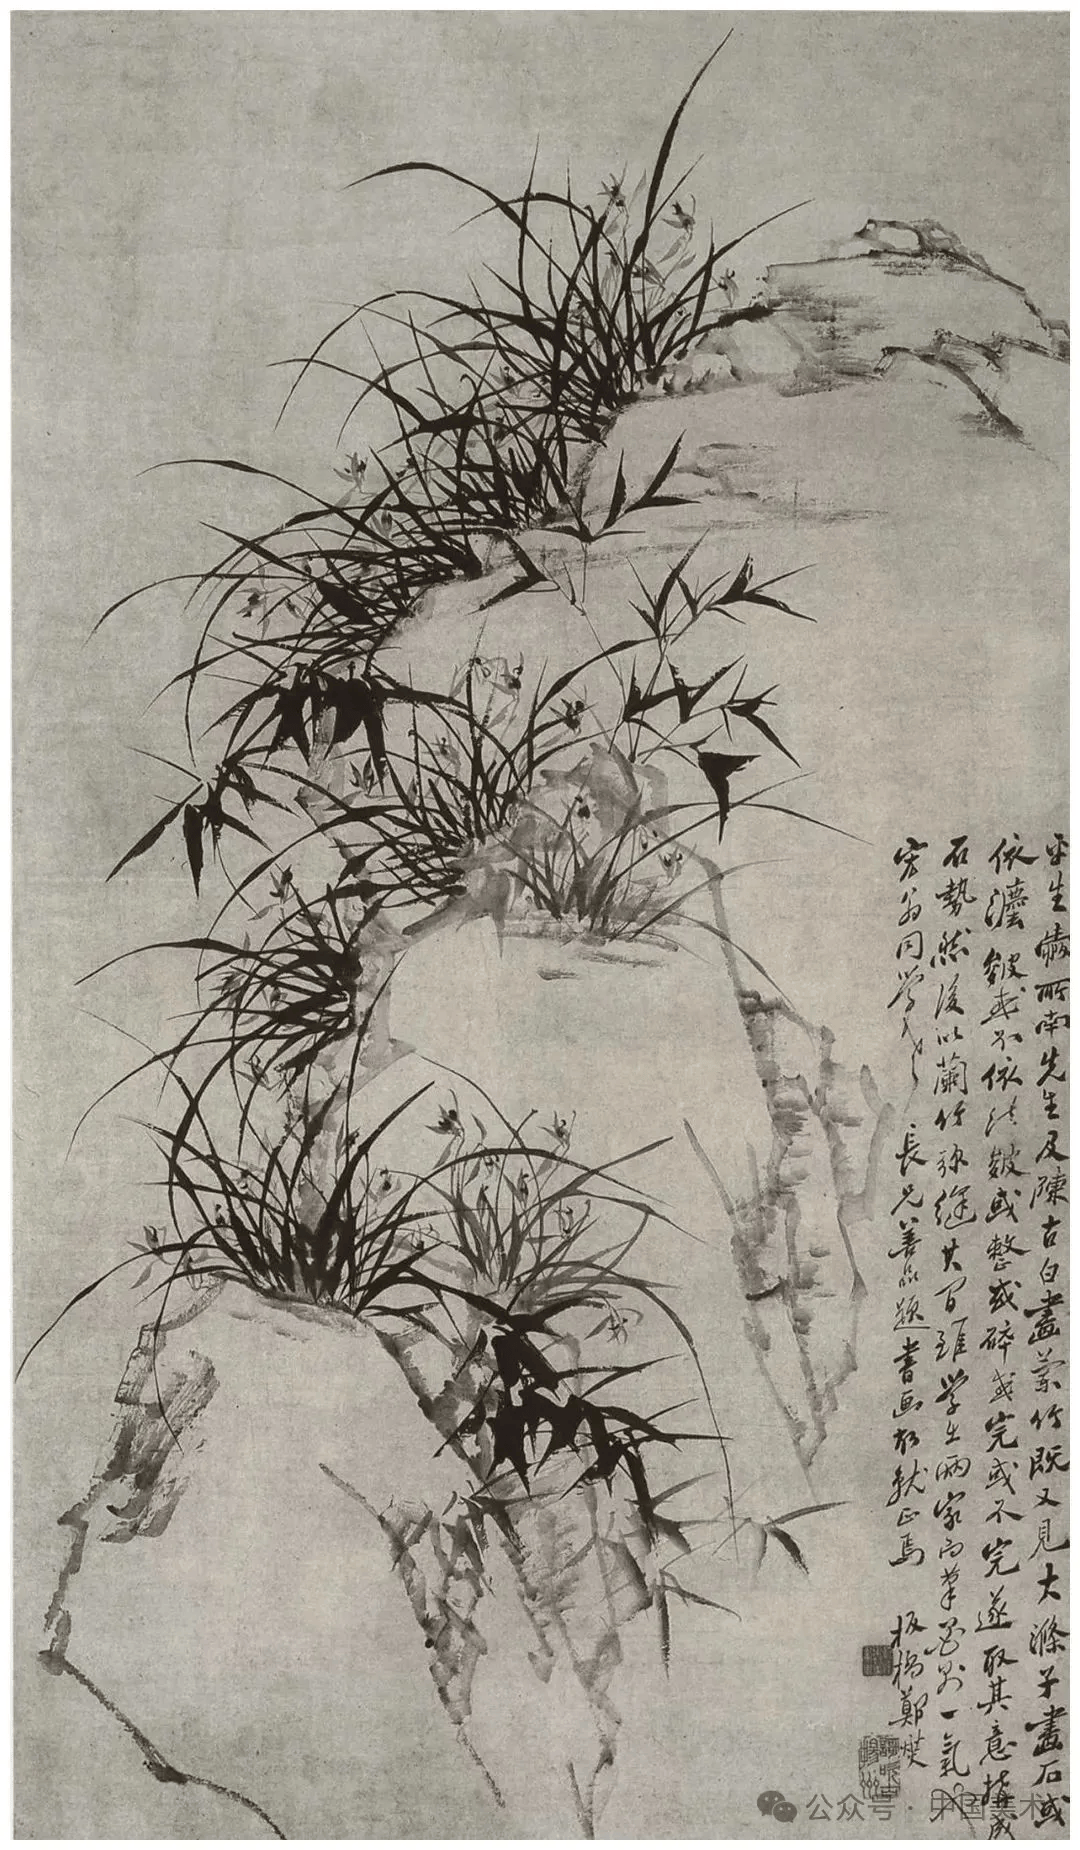 平生愛所南先生及陳古白畫蘭竹既又見大滌子畫石或
依法皴或不依法皴或整或碎或完或不完遂取其意搆成
石勢然後以蘭竹弥縫其間雖學出兩家而筆墨則一氣也
宏翁同學老長兄善品題書画故就正焉
板橋鄭燮
公众号·中国美术